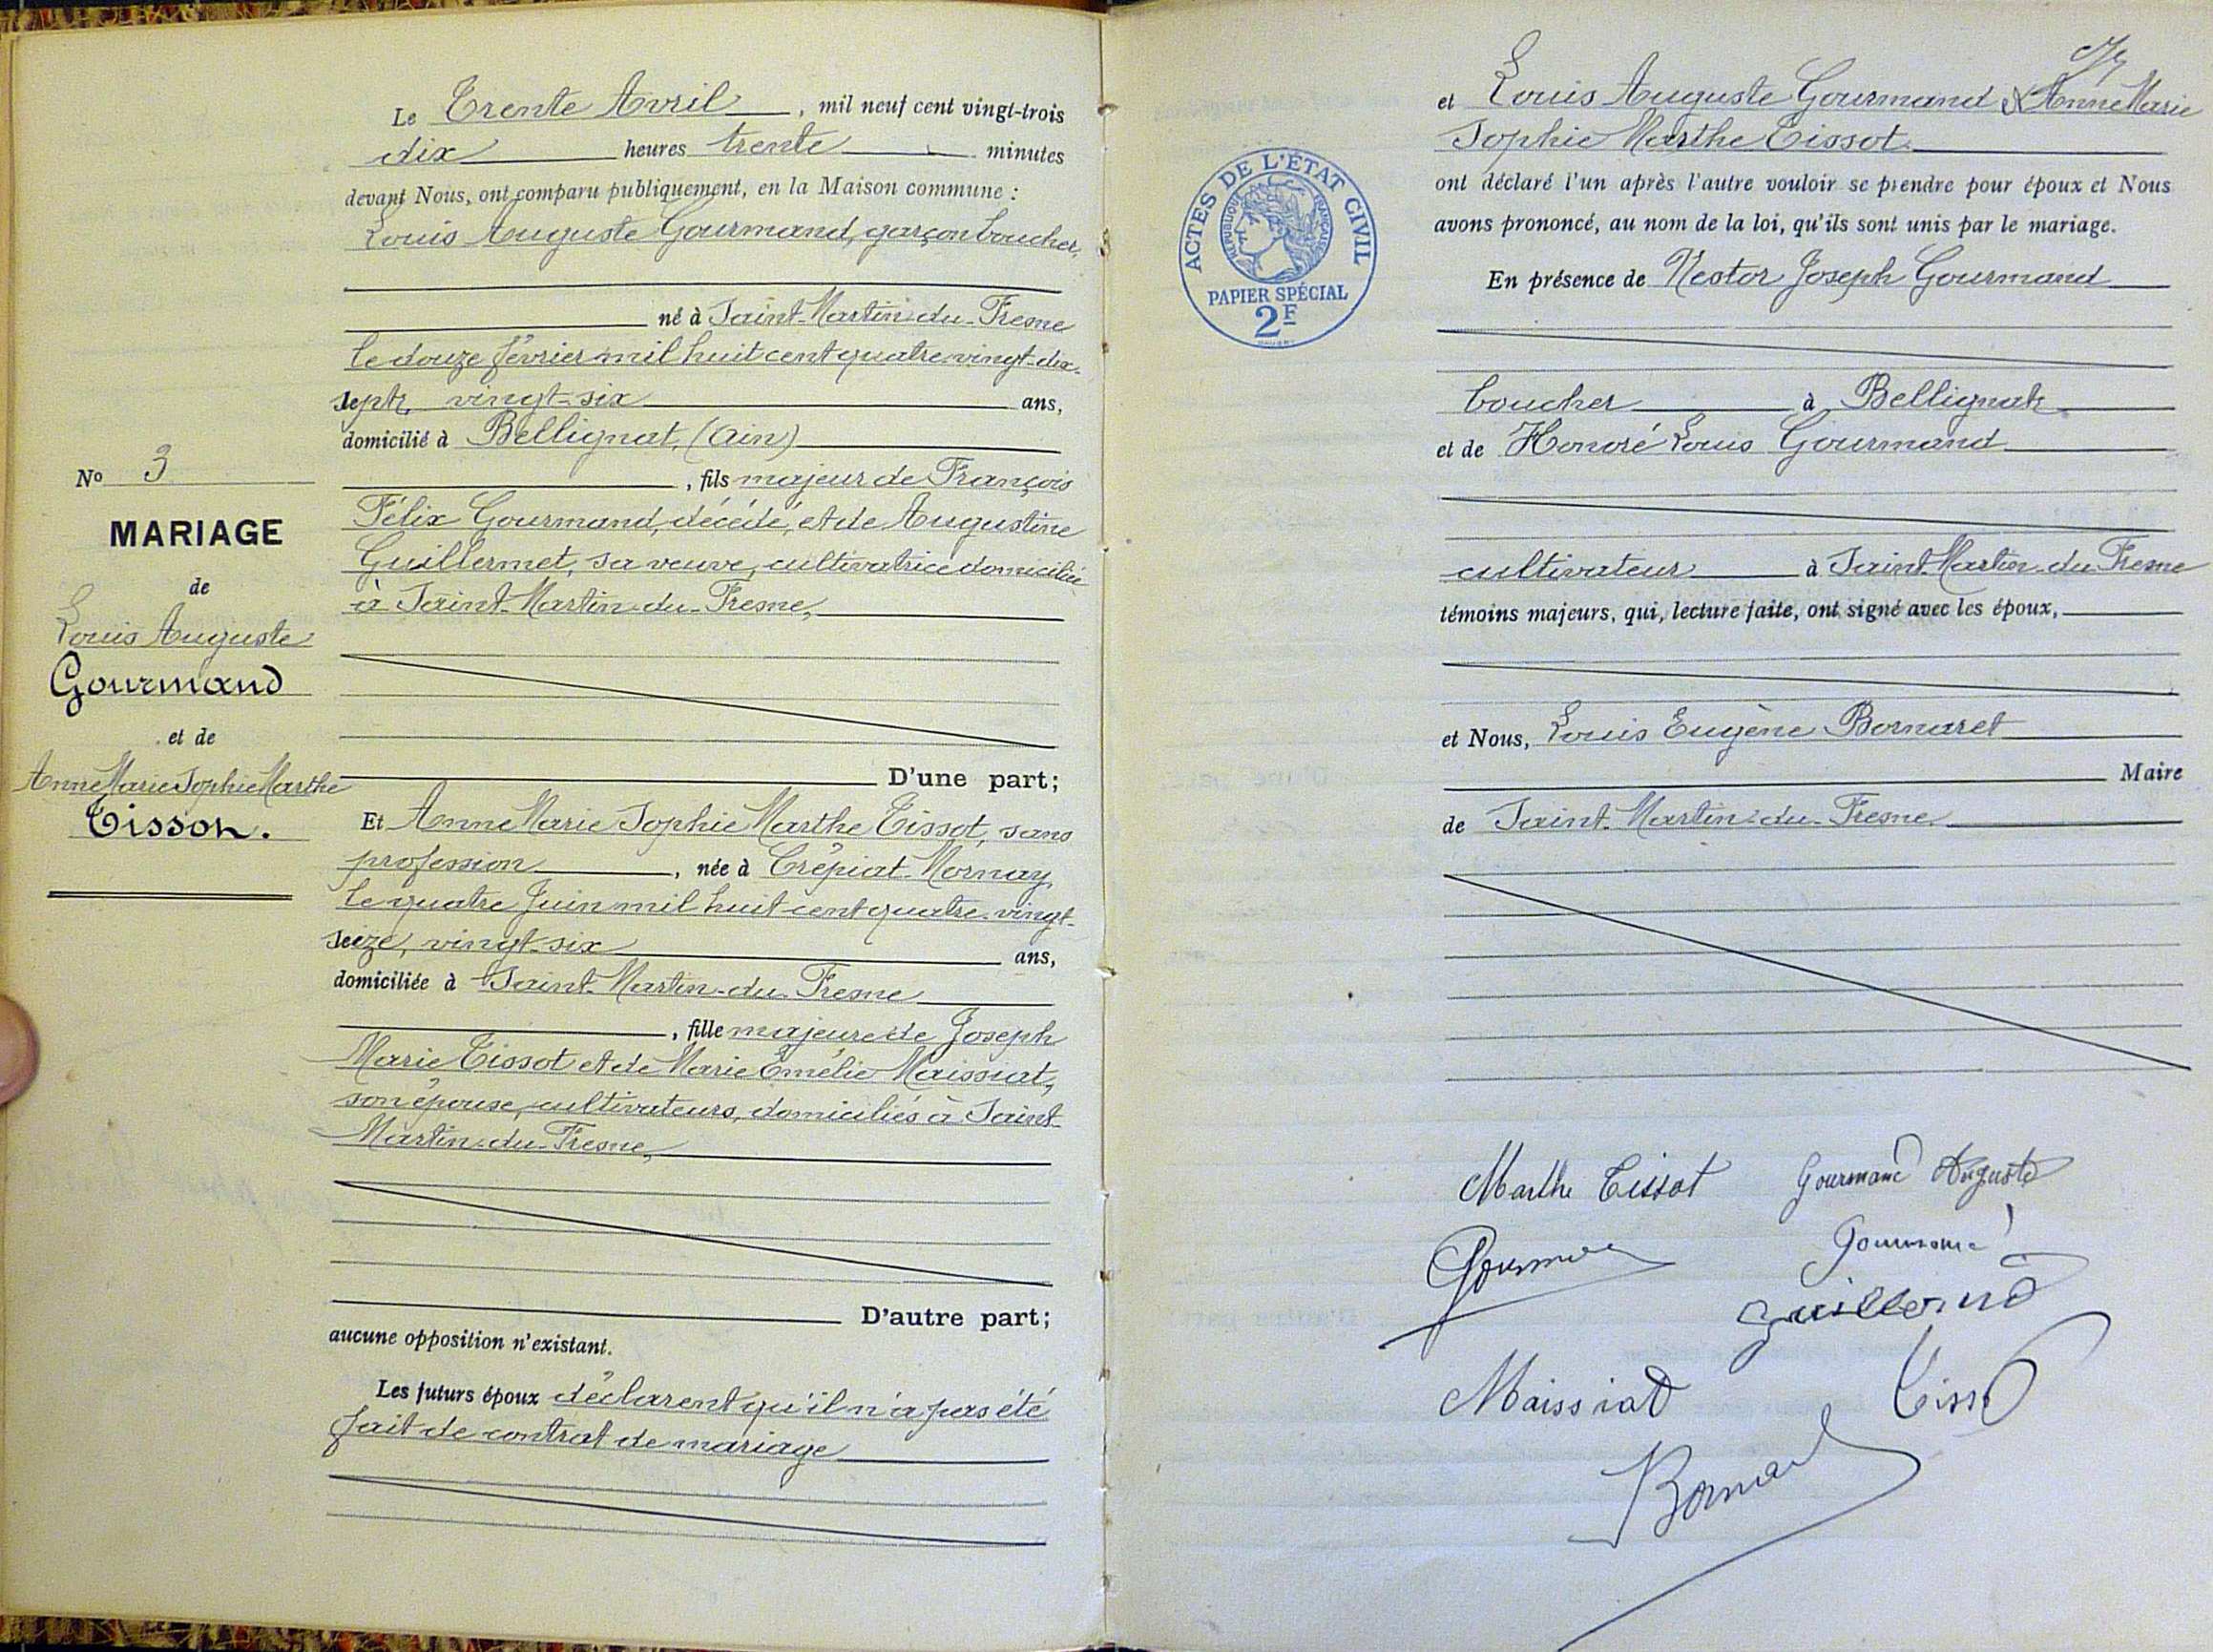 Le Trente Avril, mil neuf cent vingt-trois
dix heures trente minutes
devant Nous, ont comparu publiquement, en la Maison commune :
Louis Auguste Gourmand, garçon boucher,
né à Saint-Martin-du-Fresne
le douze février mil huit cent quatre-vingt-dix-
sept, vingt-six ans,
domicilié à Bellignat, (Ain)
, fils majeur de François
Félix Gourmand, décédé, et de Augustine
Guillermet, sa veuve, cultivatrice domiciliée
à Saint-Martin-du-Fresne,
D'une part;
Et Anne Marie Sophie Marthe Tissot, sans
profession, née à Crépiat-Mornay
le quatre Juin mil huit cent quatre-vingt-
seize, vingt-six ans,
domiciliée à Saint-Martin-du-Fresne
, fille majeure de Joseph
Marie Tissot et de Marie Emélie Maissiat,
son épouse, cultivateurs, domiciliés à Saint-
Martin-du-Fresne,
D'autre part;
aucune opposition n'existant.
Les futurs époux déclarent qu'il n'a pas été
fait de contrat de mariage
No 3
MARIAGE
de
Louis Auguste
Gourmand
et de
Anne Marie Sophie Marthe
Tissot.
et Louis Auguste Gourmand & Anne Marie
Sophie Marthe Tissot
ont déclaré l'un après l'autre vouloir se prendre pour époux et Nous
avons prononcé, au nom de la loi, qu'ils sont unis par le mariage.
En présence de Nestor Joseph Gourmand
boucher à Bellignat
et de Honoré Louis Gourmand
cultivateur à Saint-Martin-du-Fresne
témoins majeurs, qui, lecture faite, ont signé avec les époux,
et Nous, Louis Eugène Bornaret
Maire
de Saint-Martin-du-Fresne
ACTES DE L'ÉTAT CIVIL
RÉPUBLIQUE FRANÇAISE
PAPIER SPÉCIAL
2F
Marthe Tissot Gourmand Auguste
Maissiat